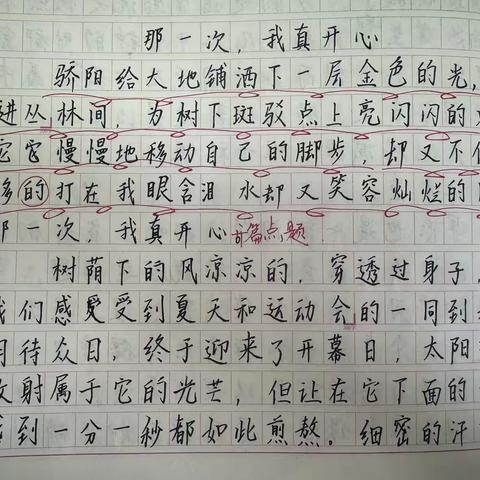 那一次,我真开心
骄阳给大地铺洒下一层金色的光,
进丛林间,为树下斑驳点上亮闪闪的
它它慢慢地移动自己的脚步,却又不
移的打在我眼含泪水却又笑容灿烂的
那一次,我真开心 首篇点题
树荫下的风凉凉的,穿透过身子,
我们感受受到夏天和运动会的一同到
期待众日,终于迎来了开幕日,太阳
放射属于它的光芒,但让在它下面的
感到一分一秒都如此煎熬。细密的汗